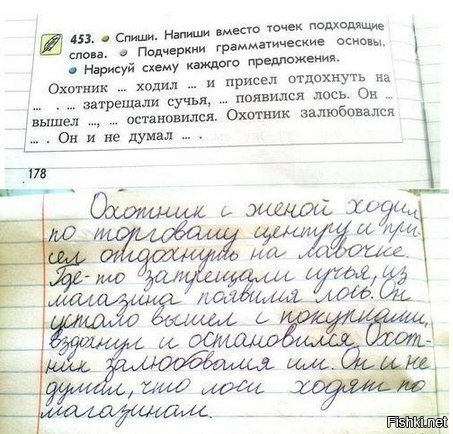 453. • Спиши. Напиши вместо точек подходящие
слова. • Подчеркни грамматические основы.
• Нарисуй схему каждого предложения.
Охотник ... ходил ... и присел отдохнуть на
... . ... затрещали сучья, ... появился лось. Он ...
вышел ..., ... остановился. Охотник залюбовался
... . Он и не думал ... .
178
Охотник с женой ходил
по торговому центру и при
сел отдохнуть на лавочке.
Где-то затрещали сучья, из
магазина появился лось. Он
устало вышел с покупками,
вздохнул и остановился. Охот-
ник залюбовался им. Он и не
думал, что лоси ходят по
магазинам.
Fishki.net